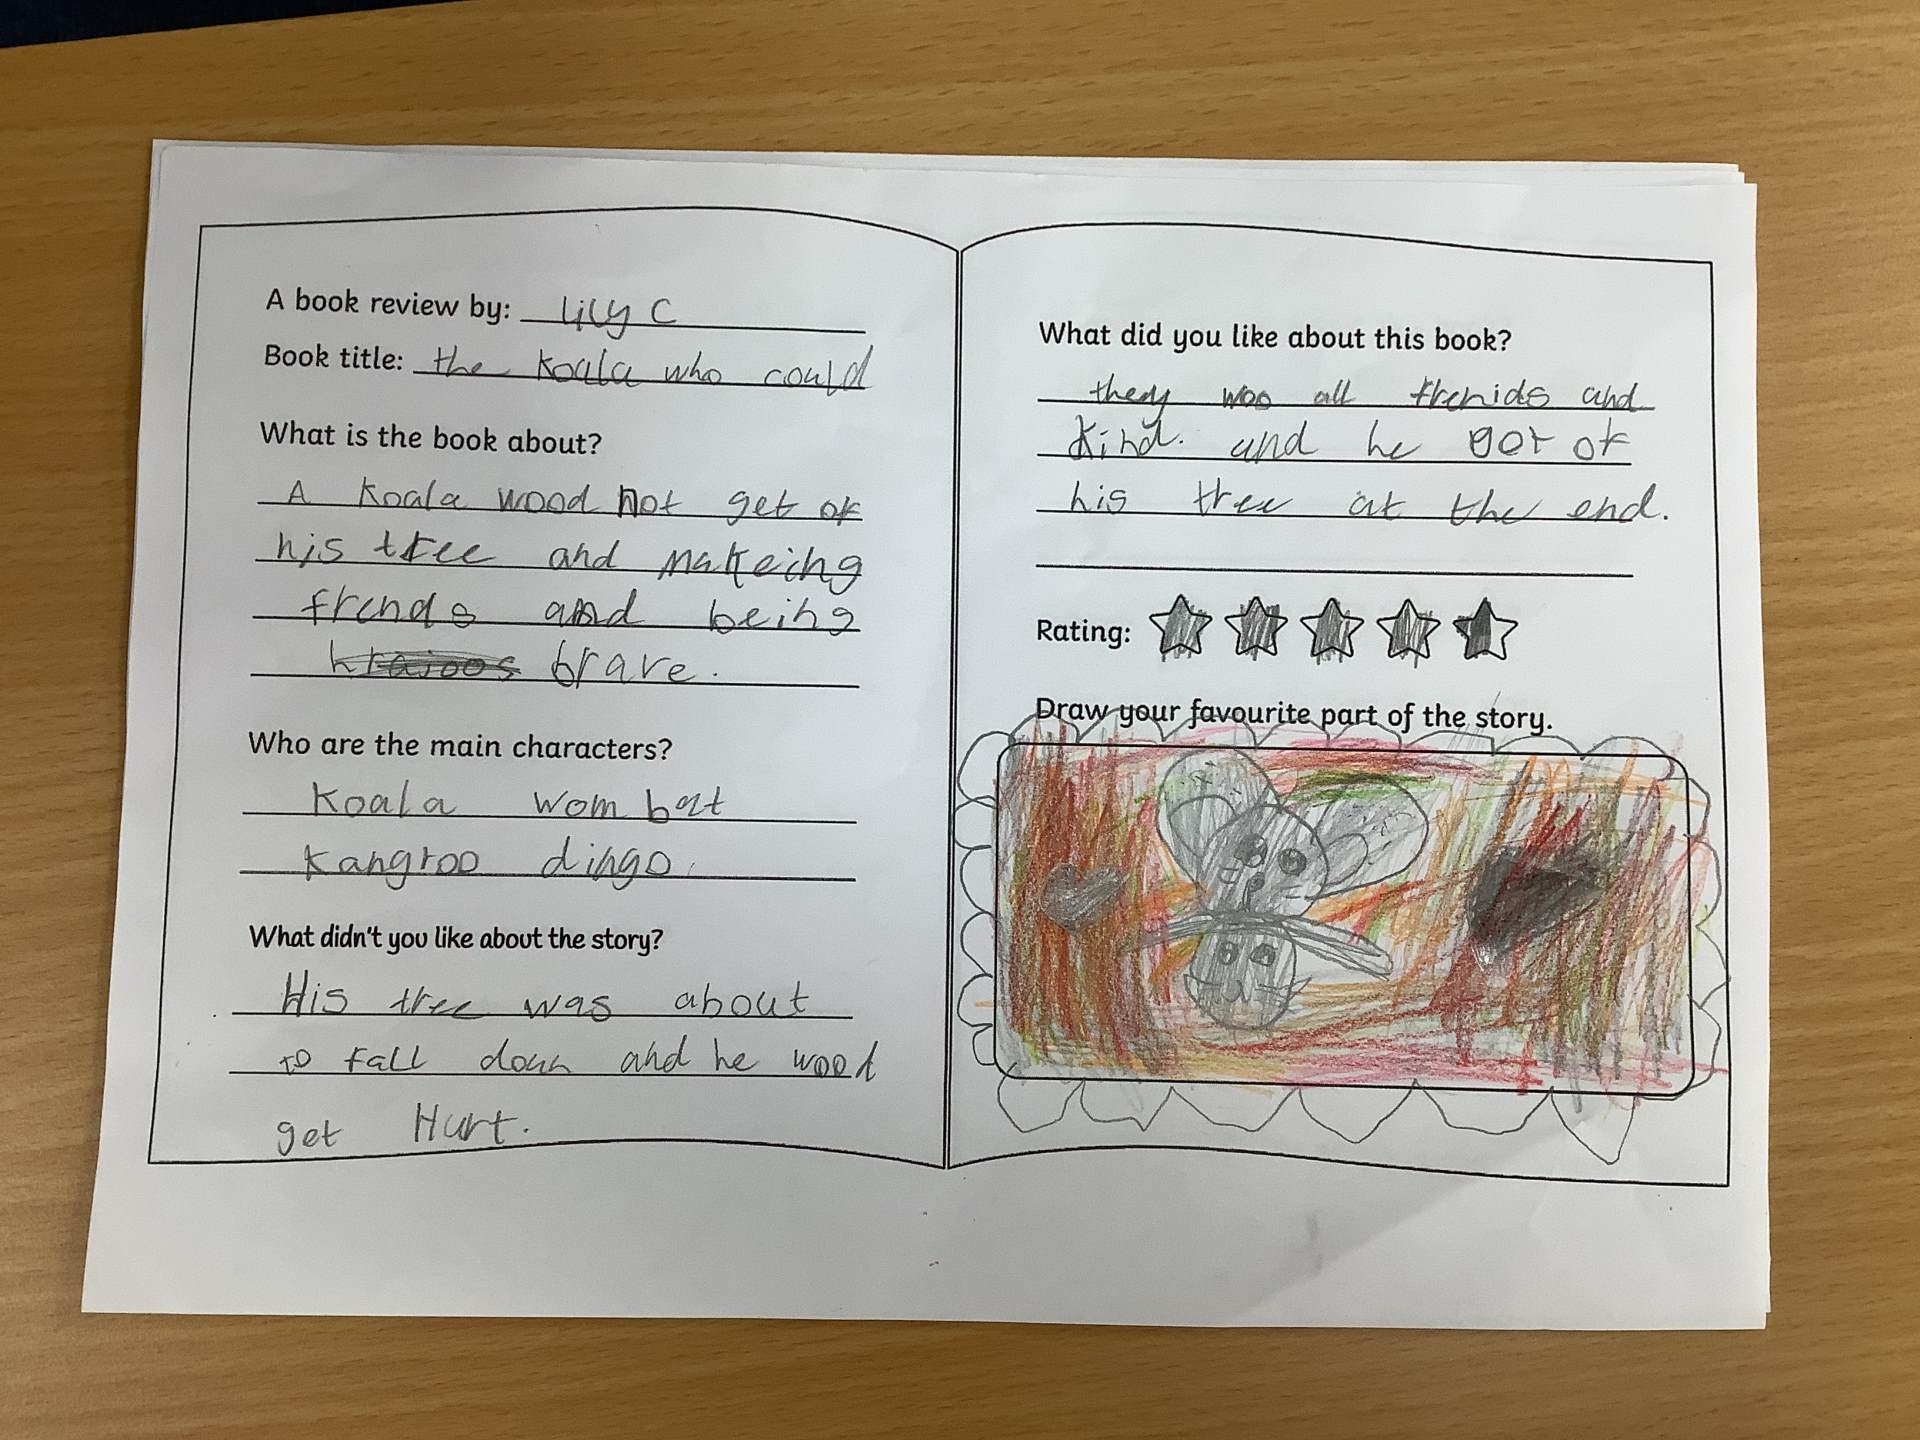 A book review by: Lily C
Book title: the Koala who could
What is the book about?
A Koala wood not get of
his tree and makeing
frends and being
brave.
Who are the main characters?
Koala wombat
Kangroo dingo.
What didn't you like about the story?
His tree was about
to fall down and he wood
get Hurt.
What did you like about this book?
they was all frenids and
Kind. and he got of
his tree at the end.
Rating:
Draw your favourite part of the story.